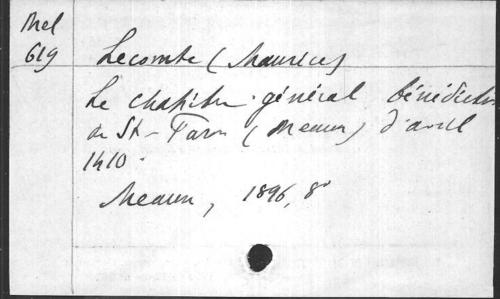 Mel
619
Lecomte (Maurice)
Le chapitre général bénédictin
de St-Faron (Meaux) d'avril
1410.
Meaux, 1896, 8°